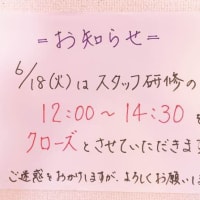 =お知らせ=
6/18(火)はスタッフ研修の
12:00〜14:30
クローズとさせていただきます
ご迷惑をおかけしますが、よろしくお願いしま